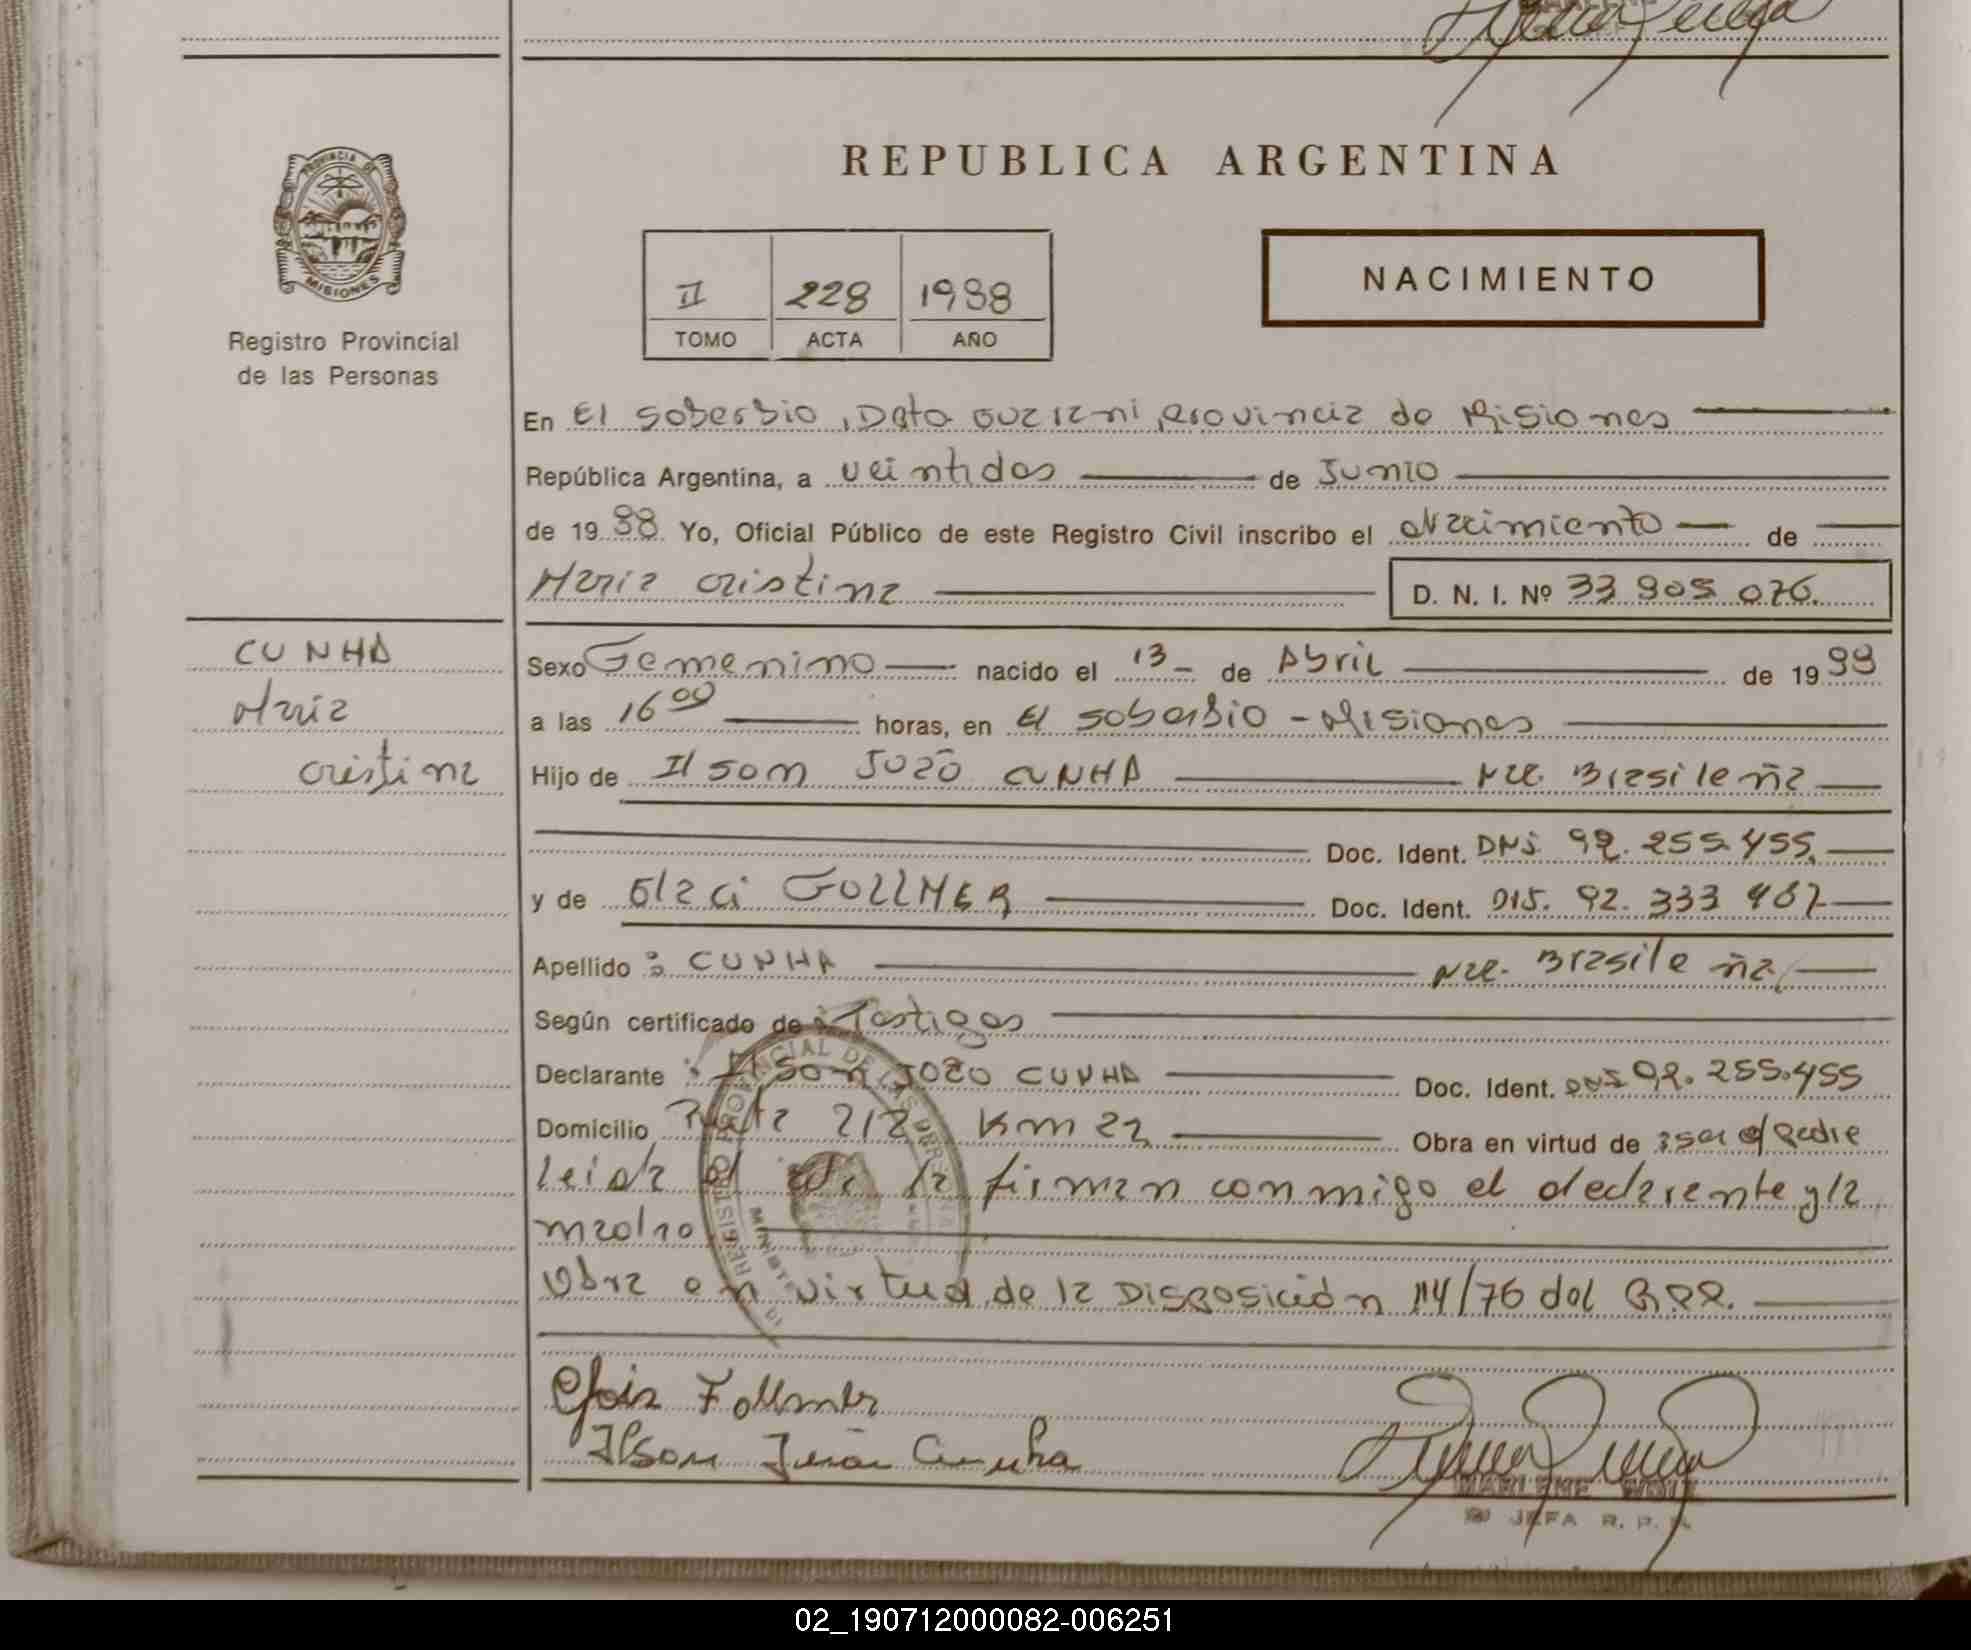 REPUBLICA ARGENTINA
PROVINCIA DE
MISIONES
Registro Provincial
de las Personas
II 228 1988
TOMO ACTA AÑO
NACIMIENTO
En El Soberbio, Dpto Guarani, Provincia de Misiones
República Argentina, a veintidos de Junio
de 1988 Yo, Oficial Público de este Registro Civil inscribo el Nacimiento de
Maria Cristina D. N. I. Nº 33 905 076.
CUNHA
Maria
Cristina
Sexo Femenino nacido el 13 de Abril de 1988
a las 16 00 horas, en El Soberbio - Misiones
Hijo de Ilson João CUNHA Nac. Brasileña
Doc. Ident. DNI 92.255.455.
y de Elaci FOLLMER Doc. Ident. 92.333 467
Apellido : CUNHA Nac. Brasileña
Según certificado de : Testigos
Declarante : Ilson João CUNHA Doc. Ident. DNI 92.255.455
Domicilio Ruta 212 Km 22 Obra en virtud de ser el padre
Leida el acta la firman conmigo el declarante y la
madre
Obra en virtud de la Disposición 114/76 del R.P.P.
Follmer
Ilson João Cunha
MARLENE
JEFA R. P. P.
02_190712000082-006251